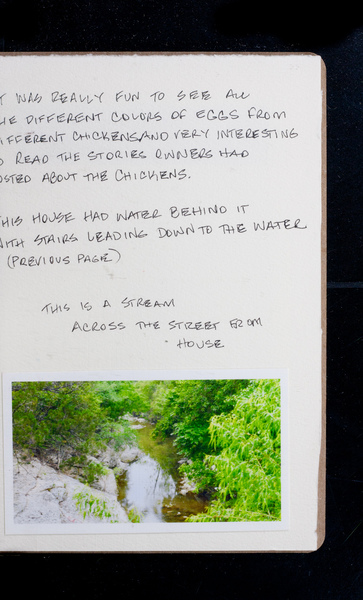 T WAS REALLY FUN TO SEE ALL
HE DIFFERENT COLORS OF EGGS FROM
IFFERENT CHICKENS AND VERY INTERESTING
O READ THE STORIES OWNERS HAD
OSTED ABOUT THE CHICKENS.
THIS HOUSE HAD WATER BEHIND IT
WITH STAIRS LEADING DOWN TO THE WATER
(PREVIOUS PAGE)
THIS IS A STREAM
ACROSS THE STREET FROM
HOUSE